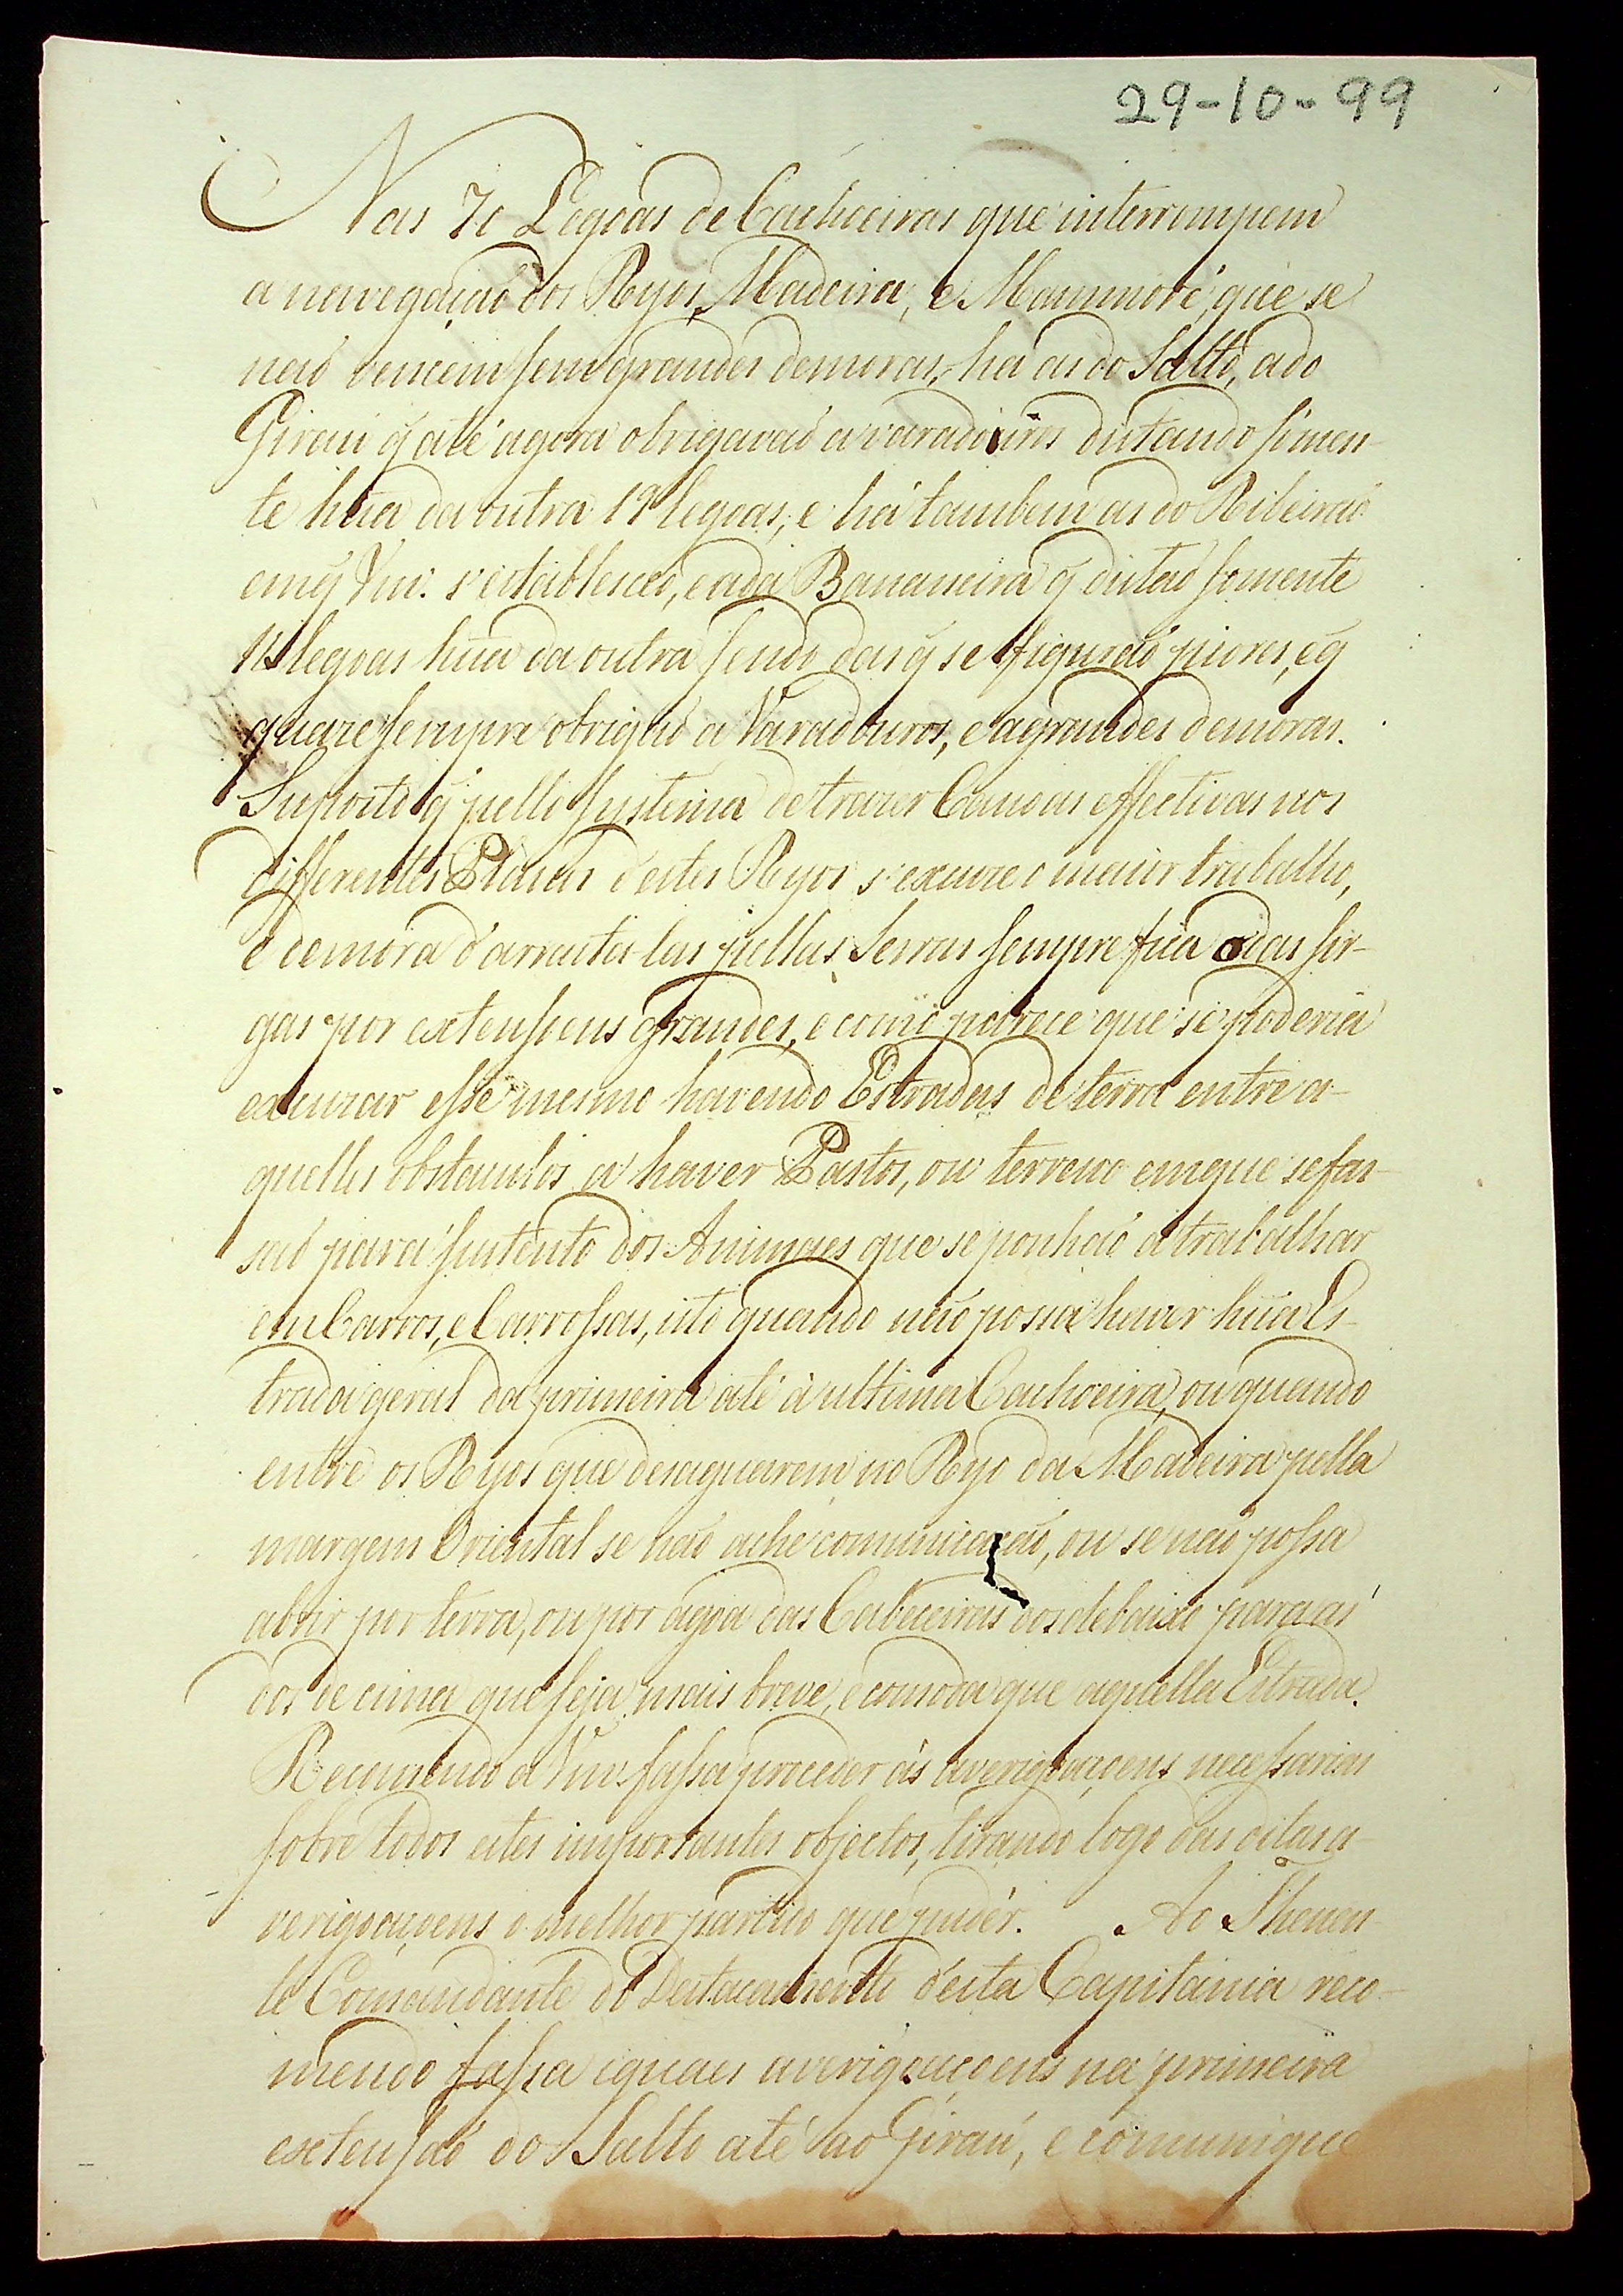 29-10-99
Nas 70 Legoas de Cachoeiras que interrompem
a navegaçaõ dos Ryos Madeira, e Mammoré, que se
naõ vencem sem grandes demoras, ha as do Salto, a do
Girau q̃ até agora obrigavaõ a varadouros distando sómen-
te hũa da outra 19 legoas, e há tambem as do Ribeiraõ
em q̃ Vm.ᶜᵉ s'establesceo, e a da Bananeira q̃ distaõ somente
legoas hũa da outra sendo das q̃ se figuraõ piores, e q̃
quaze sempre obrigaõ a Varadouros, e a grandes demoras.
Suposto q̃ pello systema de trazer Canoas effectivas nos
differentes Plasas d'estes Ryos s'excuze o maior trabalho,
e demora d'arrasta-las pellas Serras sempre fica o das sir-
gas por extensoens grandes, e como parece que se poderia
excuzar esse mesmo havendo Estradas de terra entre a-
quelles obstaculos a haver Pastos, ou terreno em que se fas-
saõ para sustento dos Animaes que se ponhaõ a trabalhar
em Carros, e Carrossas, isto quando naõ possa haver hũa Es-
trada geral da primeira até à ultima Cachoeira, ou quando
entre os Ryos que desaguarem no Ryo da Madeira pella
margem Oriental se naõ ache comunicaçaõ, ou se naõ possa
abrir por terra, ou por agoa das Cabeceiras dos debaixo para as
dos de cima que seja mais breve, e comoda que aquella Estrada.
Recomendo a Vm.ᶜᵉ fassa proceder às averigoaçoens necessarias
sobre todos estes importantes objectos, tirando logo das ditas a-
verigoaçoens o melhor partido que puder. Ao Thenen-
te Comandante do Destacamento d'esta Capitania reco-
mendo fassa iguaes averigoaçoens na primeira
extensaõ do Salto até ao Giraú, e comunique